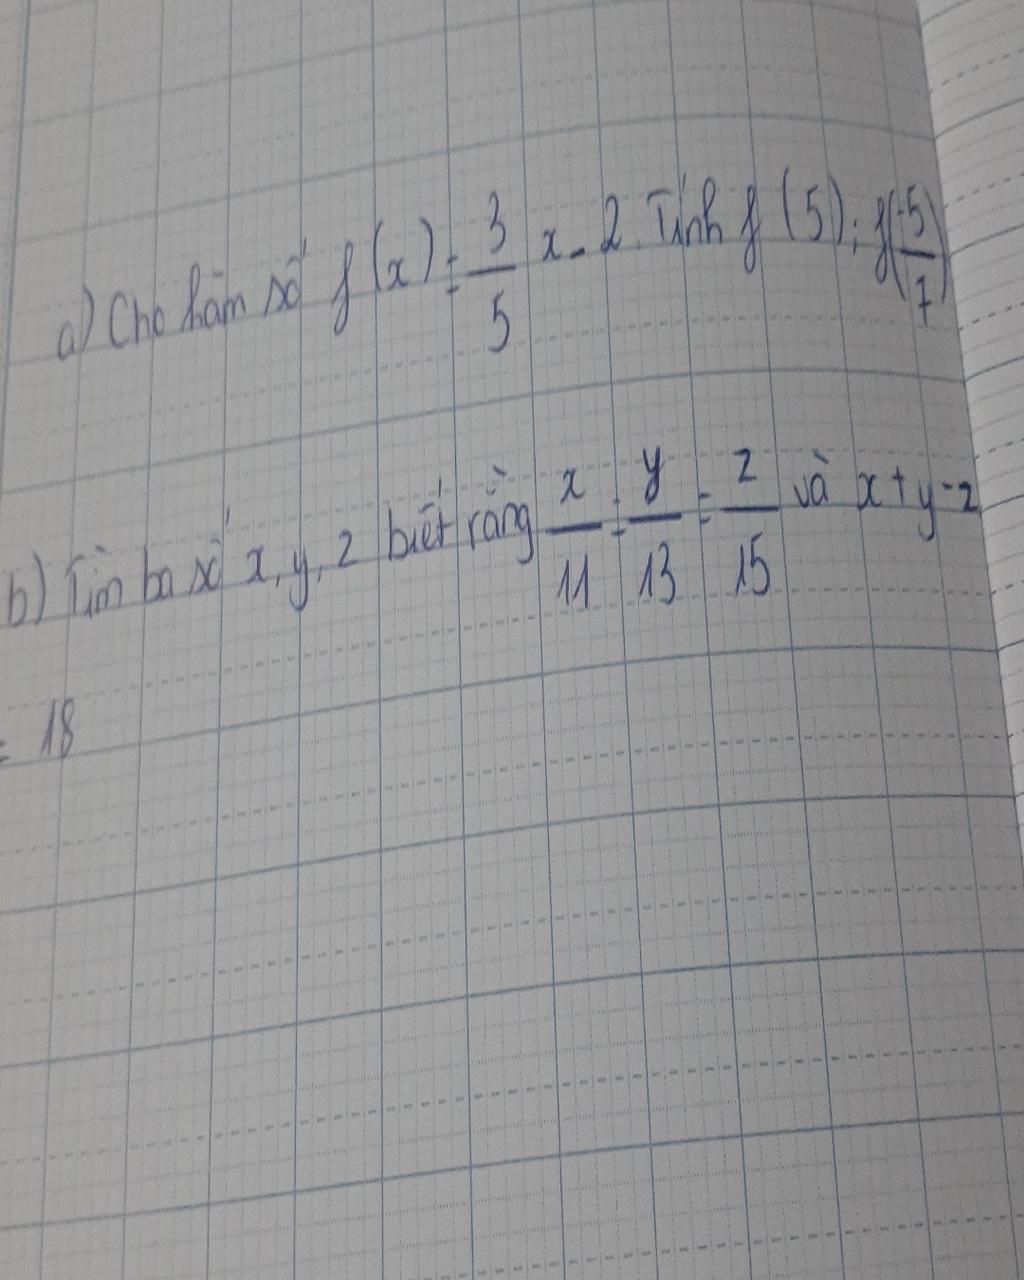 a) Cho hàm số f(x) = 3/5 x - 2. Tính f(5); f(-5/7)
b) Tìm ba số x, y, z biết rằng x/11 = y/13 = z/15 và x + y - z
= 18